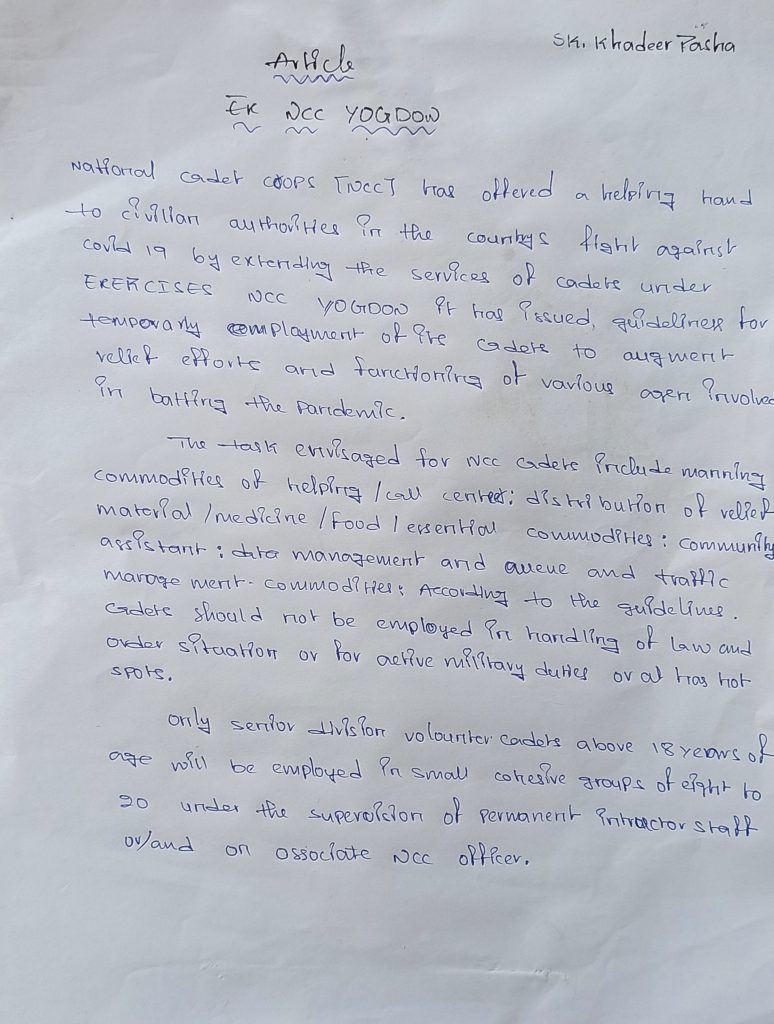 SK. Khadeer Pasha
Article
EK NCC YOGDON
National cadet coops [NCC] has offered a helping hand
to civilian authorities in the countrys fight against
covid 19 by extending the services of cadets under
EXERCISES NCC YOGDON it has issued, guidelines for
temporarly employment of the cadets to augment
relief efforts and functioning of various agen involved
in batting the pandemic.
The task envisaged for NCC cadets include manning
commodities of helping /call center: distribution of relief
material /medicine /food /essential commodities: community
assistant: data management and queue and traffic
manage ment. commodities: According to the guidelines.
cadets should not be employed in handling of law and
order situation or for active military duties or at has hot
spots.
only senior division volounter cadets above 18 years of
age will be employed in small cohesive groups of eight to
20 under the supervision of permanent intractor staff
or/and on associate NCC officer.